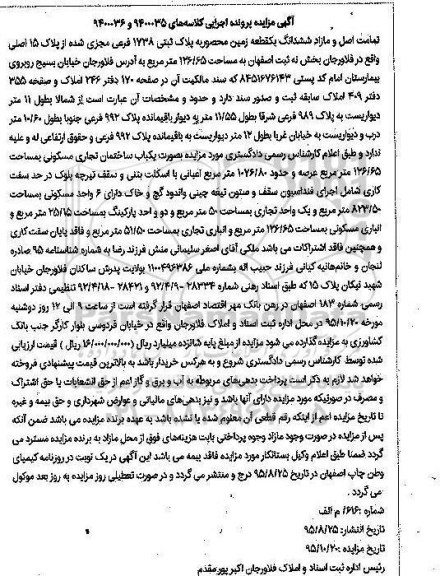 آگهی مزایده پرونده اجرایی کلاسه‌های ۹۴۰۰۰۳۵ و ۹۴۰۰۰۳۶
تمامت اصل و مازاد ششدانگ یکقطعه زمین محصور به پلاک ثبتی ۱۷۳۸ فرعی مجزی شده از پلاک ۱۵ اصلی
واقع در فلاورجان بخش نه ثبت اصفهان به مساحت ۱۳۶/۶۵ متر مربع به آدرس فلاورجان خیابان بسیج روبروی
بیمارستان امام کد پستی ۸۴۵۱۶۷۶۱۴۳ که سند مالکیت آن در صفحه ۱۷۰ دفتر ۲۴۶ املاک و صفحه ۳۵۵
دفتر ۴۰۹ املاک سابقه ثبت و صدور سند دارد و حدود و مشخصات آن عبارت است از شمالا بطول ۱۱ متر
دیواریست به پلاک ۹۸۹ فرعی شرقا بطول ۱۱/۵۵ متر به دیوار باقیمانده پلاک ۹۹۲ فرعی جنوبا بطول ۱۰/۶۰ متر
درب و دیواریست به خیابان غربا بطول ۱۲ متر دیواریست به باقیمانده پلاک ۹۹۲ فرعی و حقوق ارتفاعی له و علیه
ندارد و طبق اعلام کارشناس رسمی دادگستری مورد مزایده بصورت یکباب ساختمان تجاری مسکونی بمساحت
۱۳۶/۶۵ متر مربع عرصه و حدود ۱۰۷۶/۸۰ متر مربع اعیانی با اسکلت بتنی و سقف تیرچه بلوک در حد سفت
کاری شامل اجرای فنداسیون سقف و ستون تیغه چینی واندود گچ و خاک دارای ۶ واحد مسکونی بمساحت
۸۲۳/۵۰ متر مربع و یک واحد تجاری بمساحت ۵۰ متر مربع و دو و احد پارکینگ بمساحت ۲۵/۱۵ متر مربع و
انباری مسکونی بمساحت ۱۲۶/۶۵ متر مربع و انباری تجاری بمساحت ۵۱/۵۰ متر مربع و فاقد پایان سفت کاری
و همچنین فاقد اشتراکات می باشد ملکی آقای اصغر سلیمانی منش فرزند رضا به شماره شناسنامه ۹۵ صادره
لنجان و خانم‌هانیه کیانی فرزند حبیب اله بشماره ملی ۱۱۰۰۴۹۶۳۸۶ بولایت پدرش ساکنان فلاورجان خیابان
شهید نیکان پلاک ۱۵ که طبق اسناد رهنی شماره ۲۸۳۳۴ - ۹۲/۴/۹ و ۲۸۴۲۱ - ۹۲/۴/۱۸ تنظیمی دفتر اسناد
رسمی شماره ۱۸۳ اصفهان در رهن بانک مهر اقتصاد اصفهان قرار گرفته است از ساعت ۹ الی ۱۲ روز دوشنبه
مورخه ۹۵/۱۰/۲۰ در محل اداره ثبت اسناد و املاک فلاورجان واقع در خیابان فردوسی بلوار کارگر جنب بانک
کشاورزی به مزایده گذارده می شود مزایده از مبلغ پایه شانزده میلیارد ریال (۱۶/۰۰۰/۰۰۰/۰۰۰ ریال) قیمت ارزیابی
شده توسط کارشناس رسمی دادگستری شروع و به هرکس خریدار باشد به بالاترین قیمت پیشنهادی فروخته
خواهد شد لازم به ذکر است پرداخت بدهی‌های مربوطه به آب و برق و گاز اعم از حق انشعابات یا حق اشتراک
و مصرف در صورتیکه مورد مزایده دارای آنها باشد و نیز بدهی‌های مالیاتی و عوارض شهرداری و حق بیمه و غیره
تا تاریخ مزایده اعم از اینکه رقم قطعی آن معلوم شده یا نشده باشد به عهده برنده مزایده می باشد ضمن آنکه
پس از مزایده در صورت وجود مازاد وجوه پرداختی بابت هزینه‌های فوق از محل مازاد به برنده مزایده مسترد می
گردد ضمنا طبق اعلام وکیل بستانکار مورد مزایده فاقد بیمه می باشد این آگهی در یک نوبت در روزنامه کیمیای
وطن چاپ اصفهان در تاریخ ۹۵/۸/۲۵ درج و منتشر می گردد و در صورت تعطیلی روز مزایده به روز بعد موکول
می گردد .
شماره: ۶۱۶/ م الف
تاریخ انتشار: ۹۵/۸/۲۵
تاریخ مزایده :۹۵/۱۰/۲۰
رئیس اداره ثبت اسناد و املاک فلاورجان اکبر پورمقدم